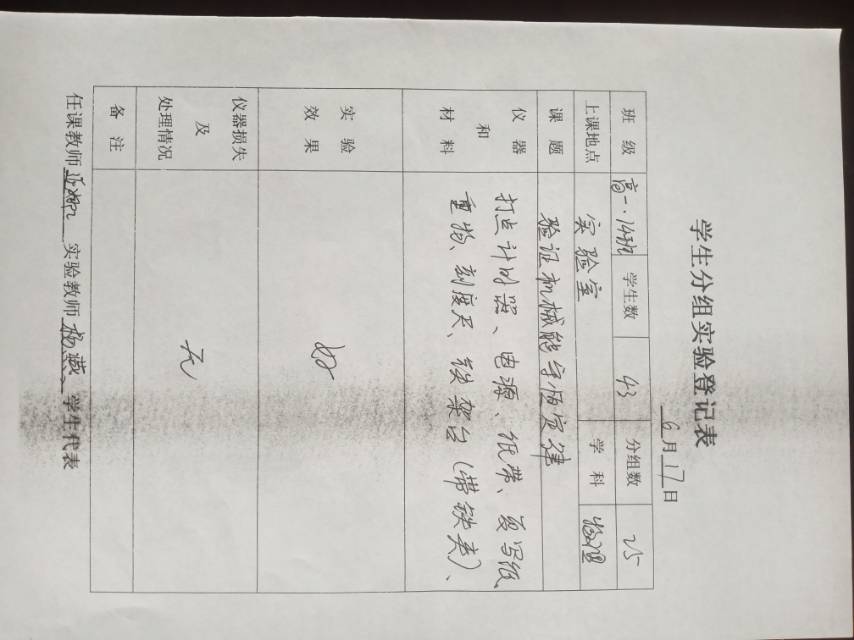 学生分组实验登记表
6月17日
班级 高一.14班 学生数 43 分组数 25
上课地点 实验室 学科 物理
课题 验证机械能守恒定律
仪器和材料 打点计时器、电源、纸带、复写纸
重物、刻度尺、铁架台(带铁夹)、
实验效果 好
仪器损失及处理情况 无
备注
任课教师 实验教师 杨燕 学生代表